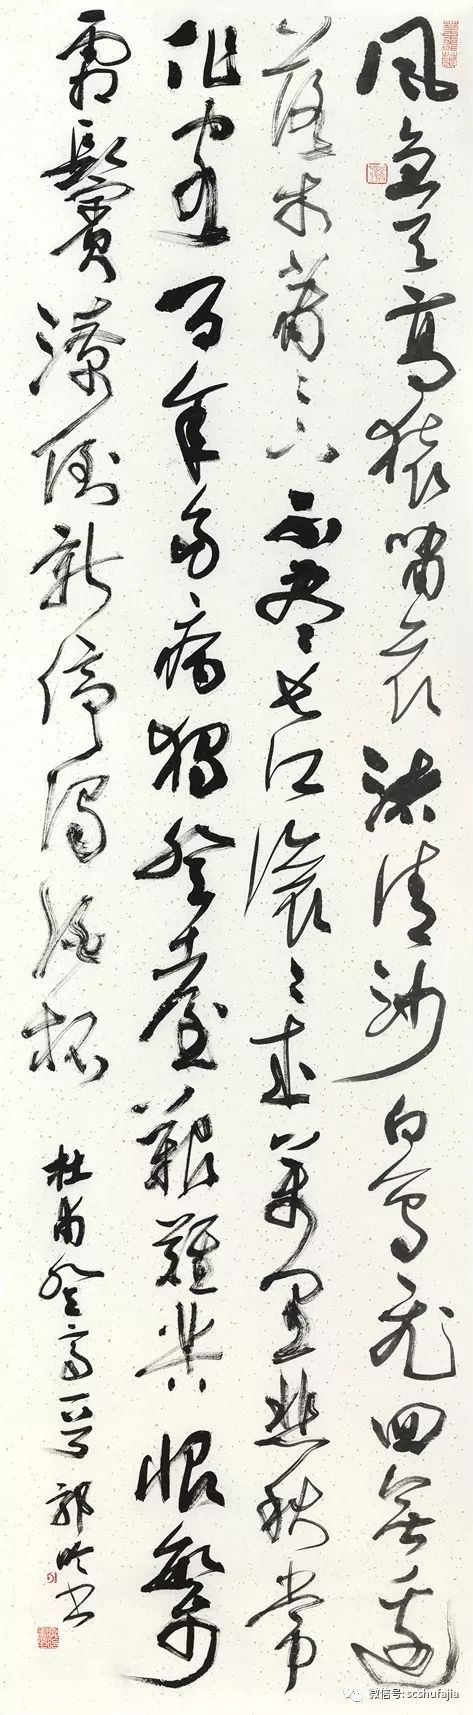 風急天高猿嘯哀渚清沙白鳥飛回無邊
落木蕭〻下不盡長江滾〻來萬里悲秋常
作客百年多病獨登臺艱難苦恨繁
霜鬢潦倒新停濁酒杯
杜甫登高一首 郭书
微信号: scshufajia